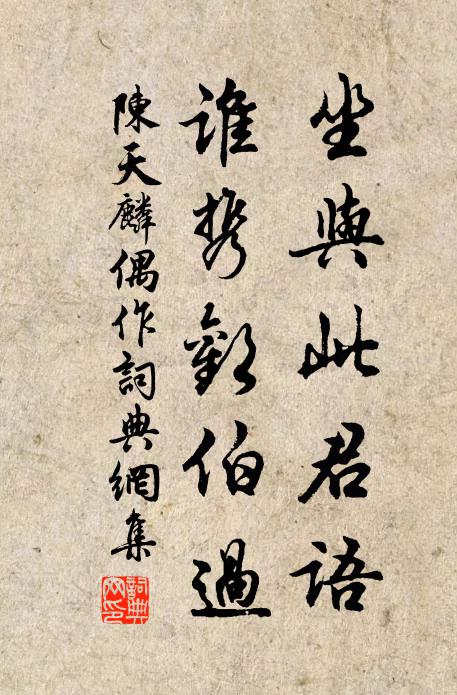 坐與此君語
誰携歡伯過
陳天麟偶作詞典網集
詞典網印